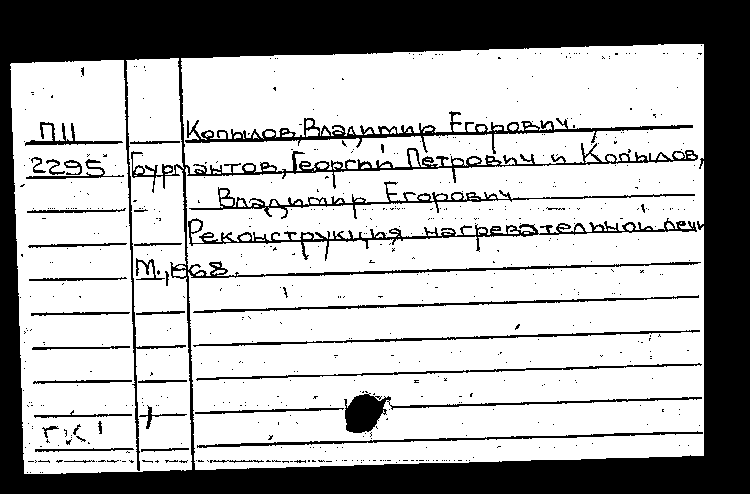 П11 Копылов, Владимир Егорович.
2295 Бурмантов, Георгий Петрович и Копылов,
Владимир Егорович
Реконструкция нагревательной печи
М., 1968.
ГК 1